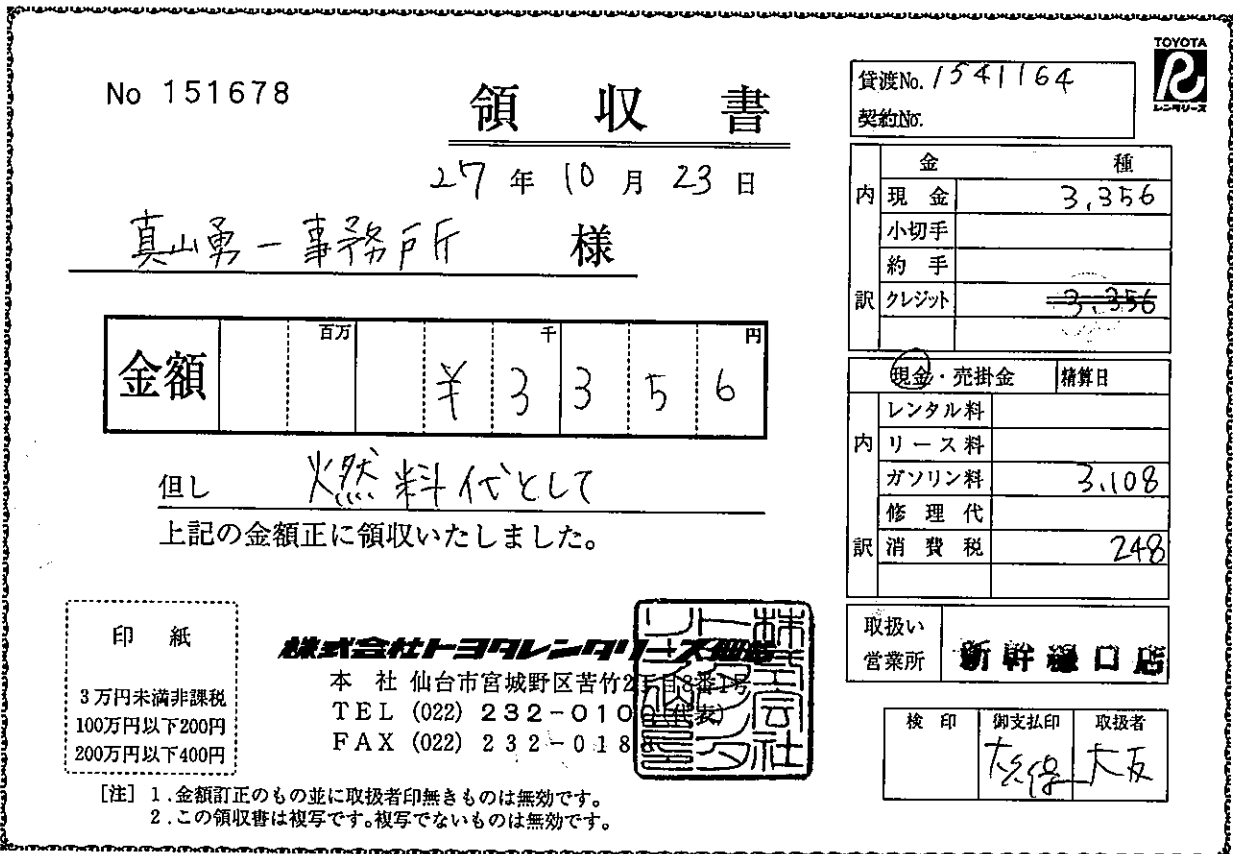 No 151678
領収書
27年10月23日
真山勇一事務所 様
金額 百万 千 円
¥3356
但し 燃料代として
上記の金額正に領収いたしました。
印紙
3万円未満非課税
100万円以下200円
200万円以下400円
株式会社トヨタレンタリース仙台
本社 仙台市宮城野区苦竹2丁目8番1号
TEL (022) 232-0100 (代表)
FAX (022) 232-0188
[注] 1.金額訂正のもの並に取扱者印無きものは無効です。
2.この領収書は複写です。複写でないものは無効です。
TOYOTA
レンタリース
貸渡No. 1541164
契約No.
金種
内訳
現金 3,356
小切手
約手
クレジット 3,356
現金・売掛金 精算日
内訳
レンタル料
リース料
ガソリン料 3,108
修理代
消費税 248
取扱い
営業所 新幹線口店
検印 御支払印 取扱者
大友